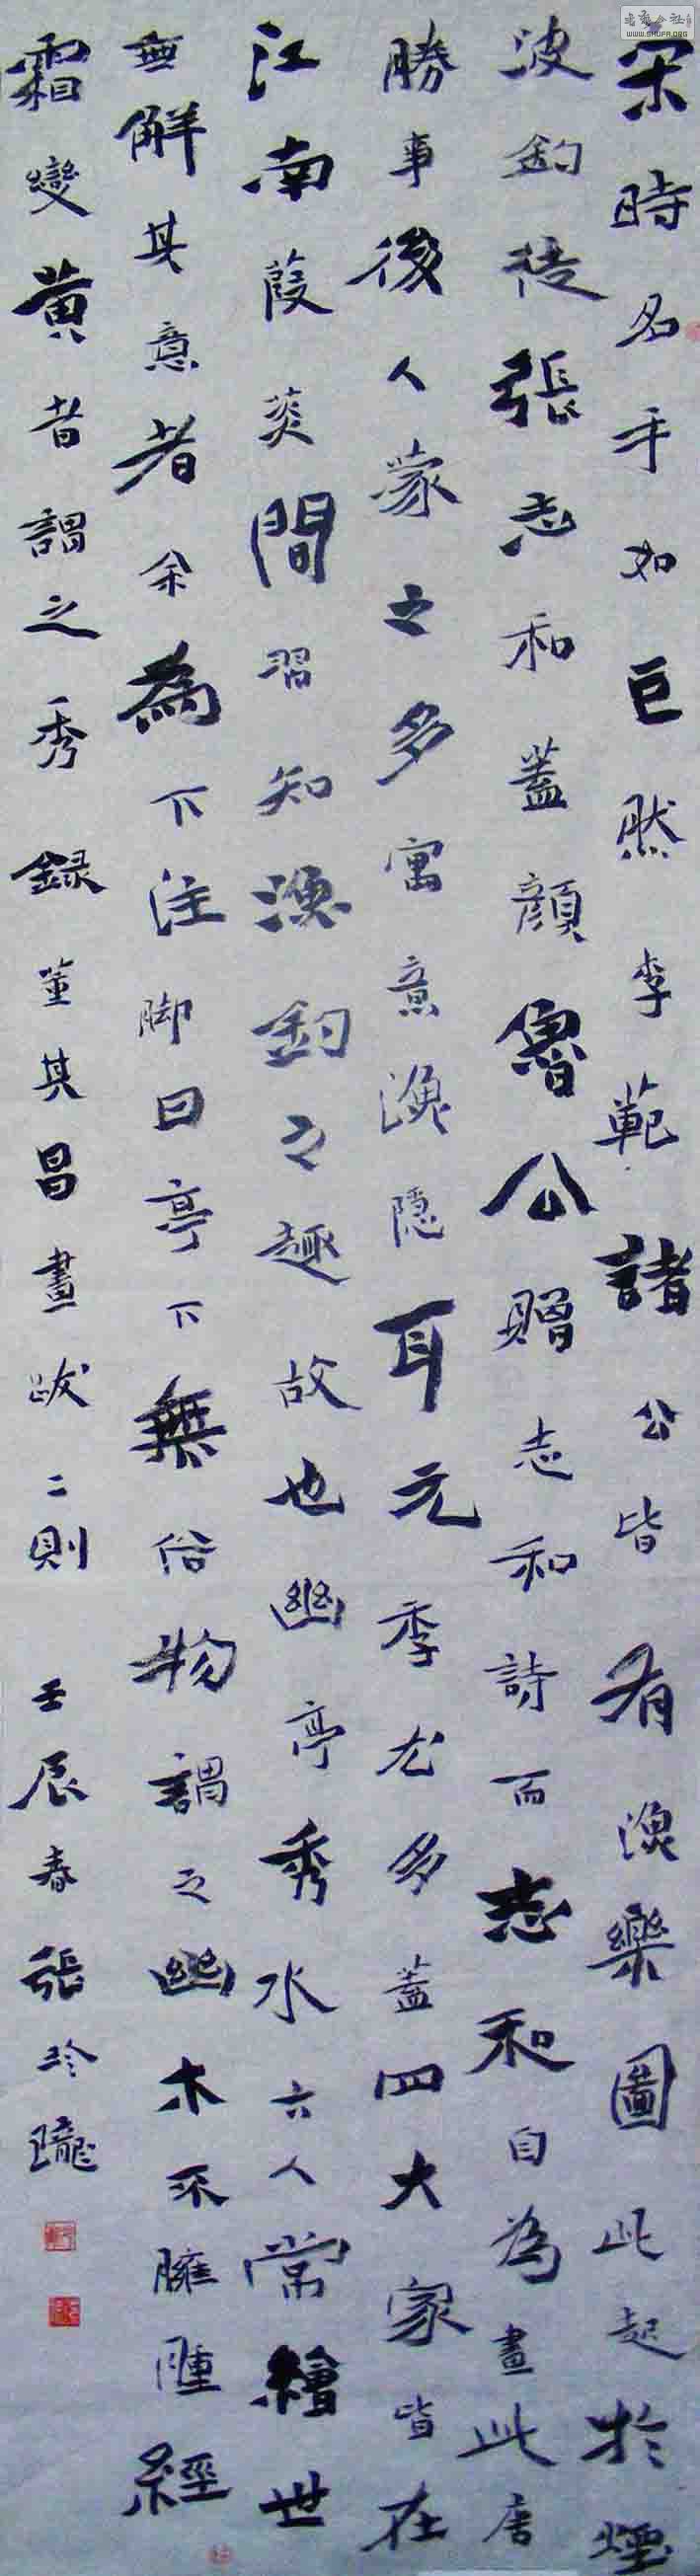 宋時名手如巨然李範諸公皆有漁樂圖此起於煙
波釣徒張志和蓋顏魯公贈志和詩而志和自為畫此唐
勝事後人蒙之多寓意漁隱耳元季尤多蓋四大家皆在
江南葭菼間習知漁釣之趣故也幽亭秀水六人常繪世
無解其意者余為下注脚曰亭下無俗物謂之幽木不臃腫經
霜變黃者謂之秀錄董其昌畫跋二則 壬辰春張玲瓏
WWW.SHUFA.ORG